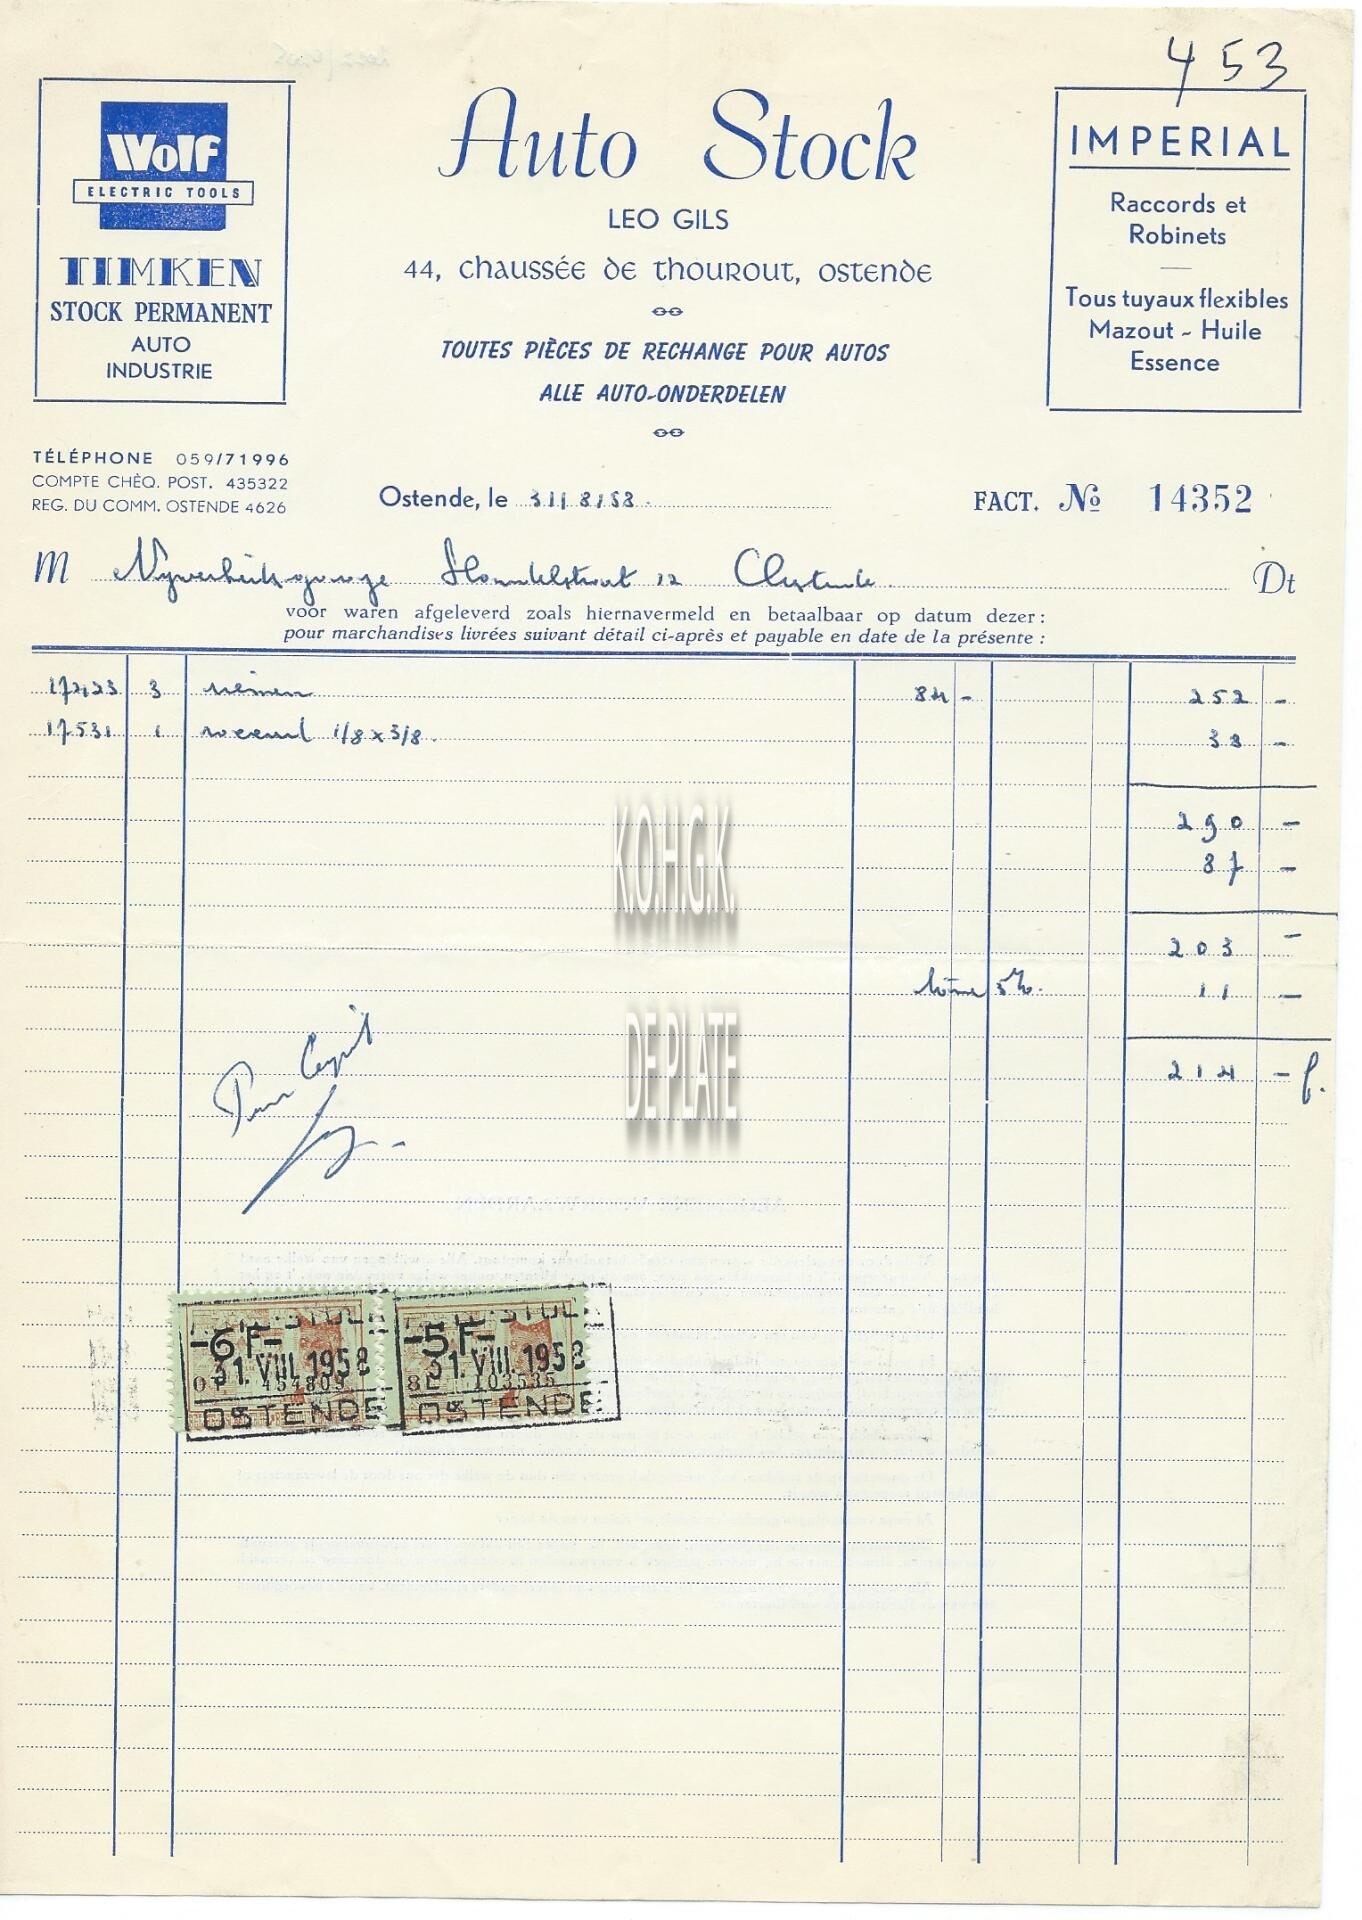 453
Wolf
ELECTRIC TOOLS
TIMKEN
STOCK PERMANENT
AUTO
INDUSTRIE
Auto Stock
LEO GILS
44, chaussée de thourout, ostende
TOUTES PIÈCES DE RECHANGE POUR AUTOS
ALLE AUTO-ONDERDELEN
IMPERIAL
Raccords et
Robinets
Tous tuyaux flexibles
Mazout - Huile
Essence
TÉLÉPHONE 059/71996
COMPTE CHÈQ. POST. 435322
REG. DU COMM. OSTENDE 4626
Ostende, le 31/8/58.
FACT. No 14352
M Nyverheidsgarage Handelstraat 12 Oostende Dt
voor waren afgeleverd zoals hiernavermeld en betaalbaar op datum dezer:
pour marchandises livrées suivant détail ci-après et payable en date de la présente :
17423 3 riemen 84 - 252 -
17531 1 raccord 1/8 x 3/8. 38 -
290 -
87 -
203 -
5%. 11 -
214 - f.
Pour Acquit
K.O.H.G.K.
DE PLATE
-6F-
31.VIII.1958
454809
OSTENDE
-5F-
31.VIII.1958
103535
OSTENDE